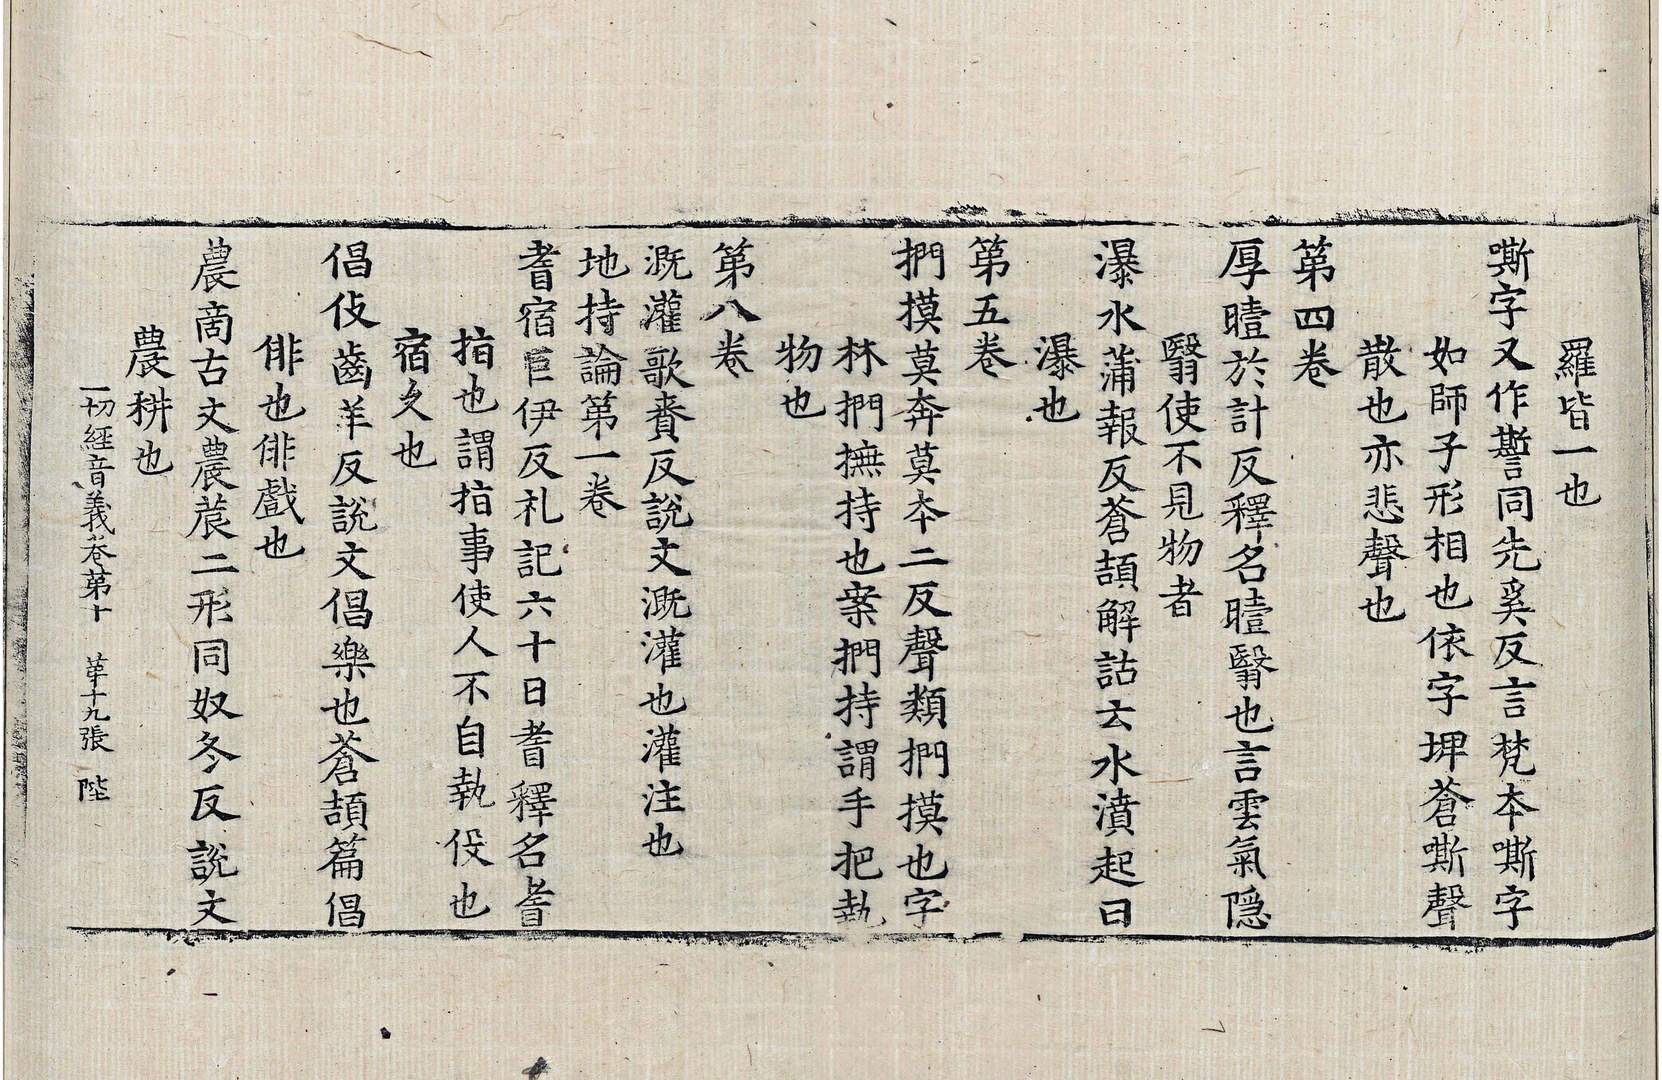 羅皆一也
嘶字又作誓同先奚反言梵本嘶字
如師子形相也依字埤蒼嘶聲
散也亦悲聲也
第四卷
厚曀於計反釋名曀翳也言雲氣隠
翳使不見物者
瀑水蒲報反蒼頡解詁云水濆起曰
瀑也
第五卷
捫摸莫奔莫夲二反聲類捫摸也字
林捫撫持也案捫持謂手把執
物也
第八卷
溉灌歌賚反說文溉灌也灌注也
地持論第一卷
耆宿巨伊反礼記六十曰耆釋名耆
指也謂指事使人不自執伇也
宿久也
倡伎齒羊反說文倡樂也蒼頡篇倡
俳也俳戲也
農商古文農莀二形同奴冬反說文
農耕也
一切經音義卷第十 苐十九張 陛